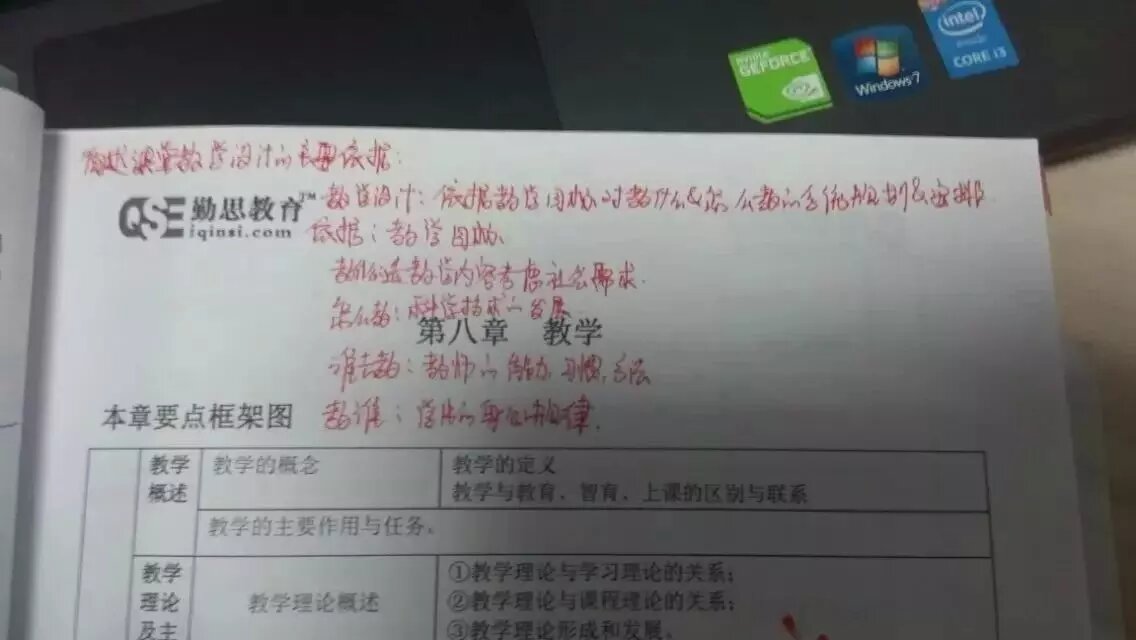 NVIDIA
GEFORCE
Windows 7
intel
CORE i3
简述课堂教学设计的主要依据:
QSE 勤思教育 TM
iqinsi.com
教学设计: 依据教学目标对教什么怎么教的
依据: 教学目标
教学内容考虑社会需求.
怎么教: 科学技术的发展
第八章 教学
谁去教: 教师的能力, 习惯, 方法
本章要点框架图
教谁: 学生的身心规律.
教学概述
教学的概念
教学的定义
教学与教育、智育、上课的区别与联系
教学的主要作用与任务。
教学
理论
及主
教学理论概述
①教学理论与学习理论的关系;
②教学理论与课程理论的关系;
③教学理论形成和发展。